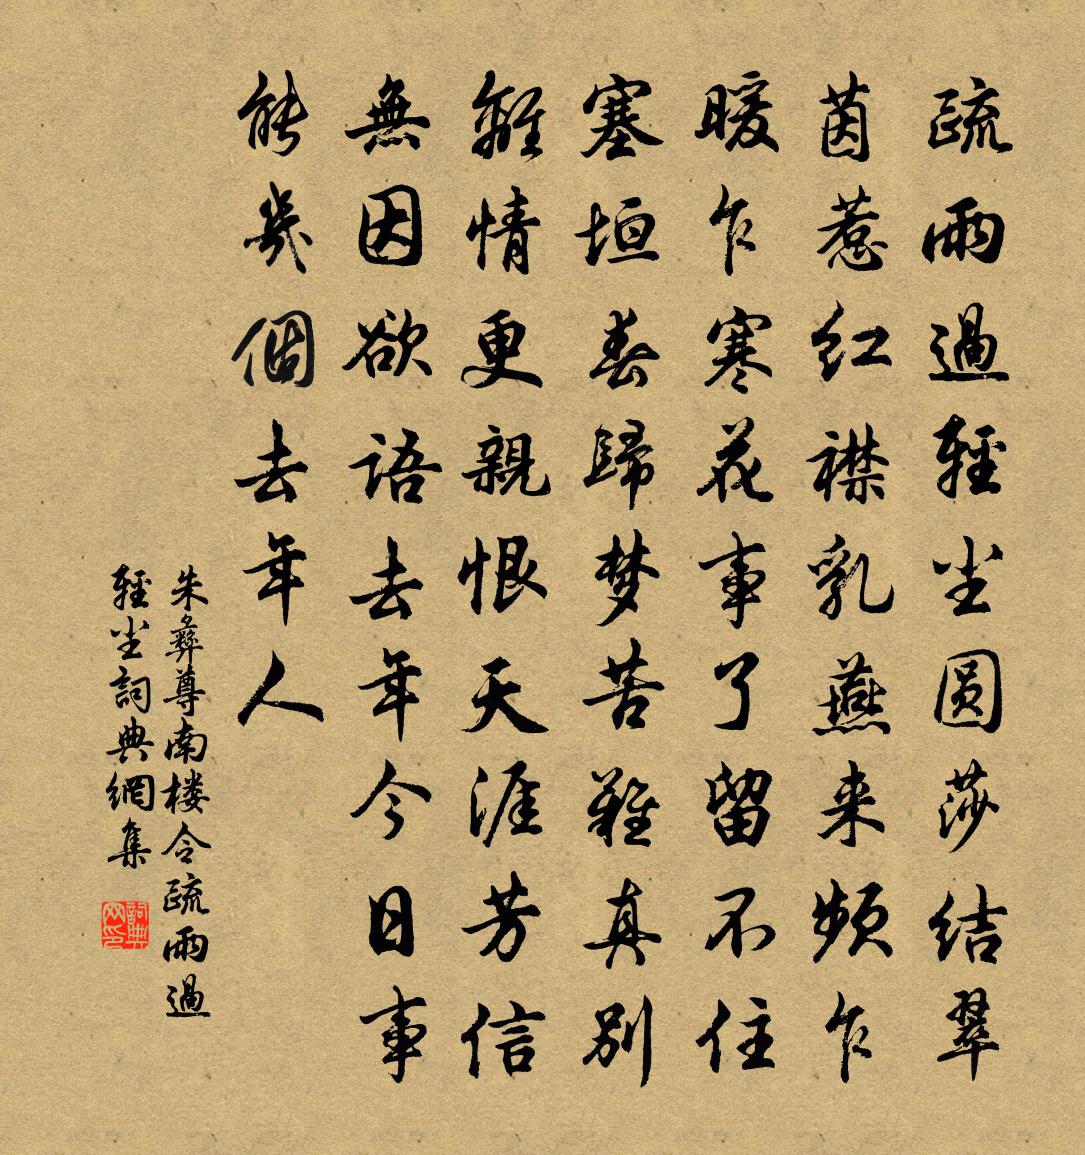 疏雨過輕尘圆莎结翠
茵惹红襟乳燕来频乍
暖乍寒花事了留不住
塞垣春歸梦苦難真别
離情更親恨天涯芳信
無因欲語去年今日事
能幾個去年人
朱彝尊南楼令疏雨過
輕尘詞典網集
詞典网印